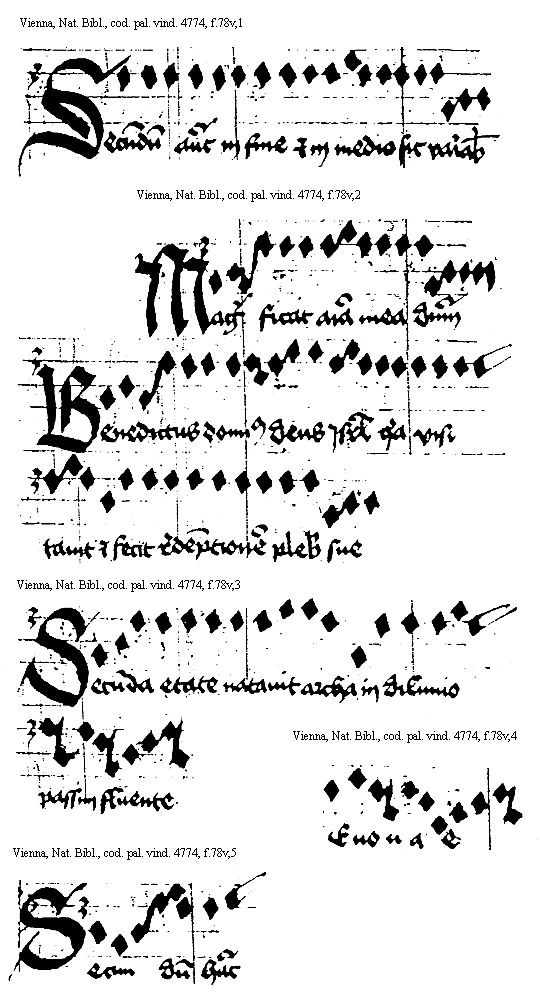 Vienna, Nat. Bibl., cod. pal. vind. 4774, f.78v,1
Secūdū aūt in fine ⁊ in medio sic
Vienna, Nat. Bibl., cod. pal. vind. 4774, f.78v,2
Magi ficat aīa mea dūm
Benedictus domꝰ deus Isrl qa visi
tauit ⁊ fecit rdēptionē pleb sue
Vienna, Nat. Bibl., cod. pal. vind. 4774, f.78v,3
Secūda etate natauit archa in diluuio
passim fluente
Vienna, Nat. Bibl., cod. pal. vind. 4774, f.78v,4
E uo u a e
Vienna, Nat. Bibl., cod. pal. vind. 4774, f.78v,5
Secun dū